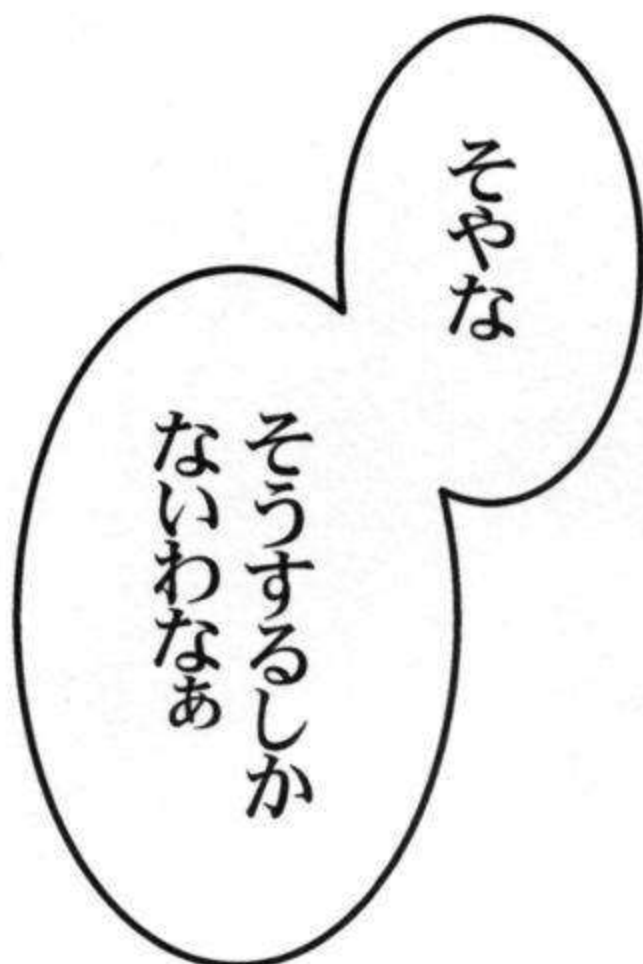 そやな
そうするしか
ないわなぁ